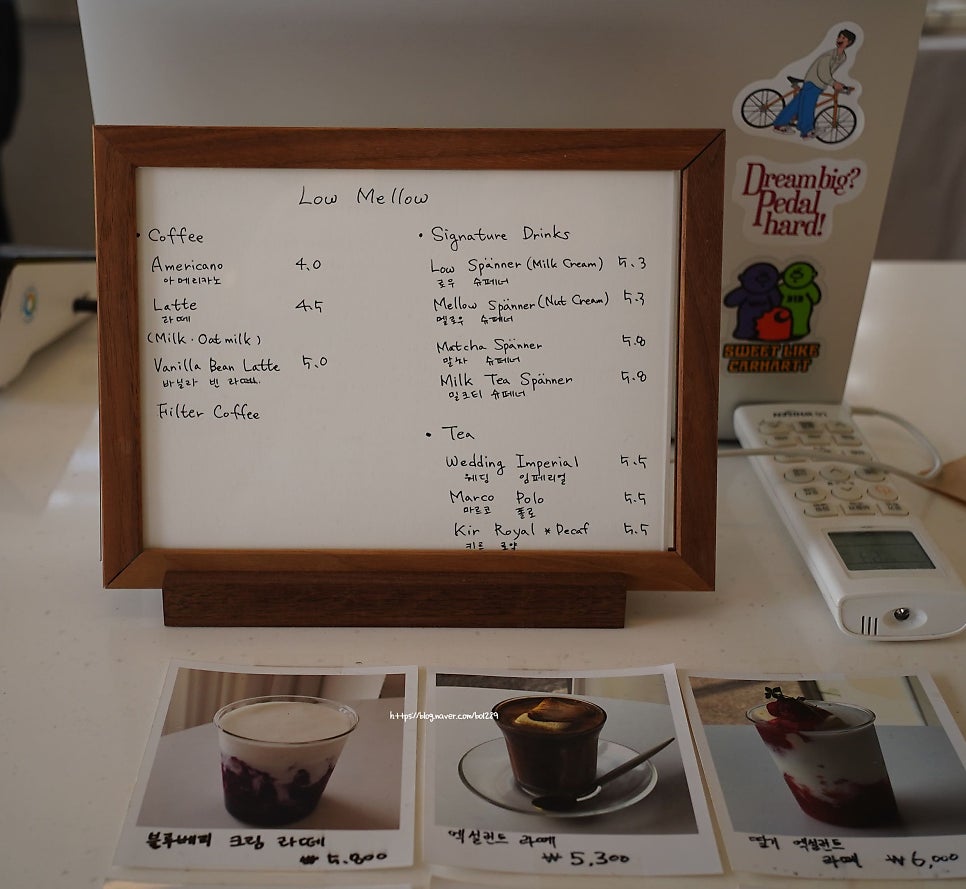 Low Mellow
· Coffee
Americano 4.0
아메리카노
Latte 4.5
라떼
(Milk · Oat milk)
Vanilla Bean Latte 5.0
바닐라 빈 라떼
Filter Coffee
· Signature Drinks
Low Spänner (Milk Cream) 5.3
로우 슈페너
Mellow Spänner (Nut Cream) 5.3
멜로우 슈페너
Matcha Spänner 5.8
말차 슈페너
Milk Tea Spänner 5.8
밀크티 슈페너
· Tea
Wedding Imperial 5.5
웨딩 임페리얼
Marco Polo 5.5
마르코 폴로
Kir Royal * Decaf 5.5
키르 로얄
Dream big?
Pedal
hard!
SWEET LIKE
CARHARTT
https://blog.naver.com/bo1229
블루베리 크림 라떼
₩ 5,800
엑설런트 라떼
₩ 5,300
딸기 엑설런트
라떼 ₩ 6,000